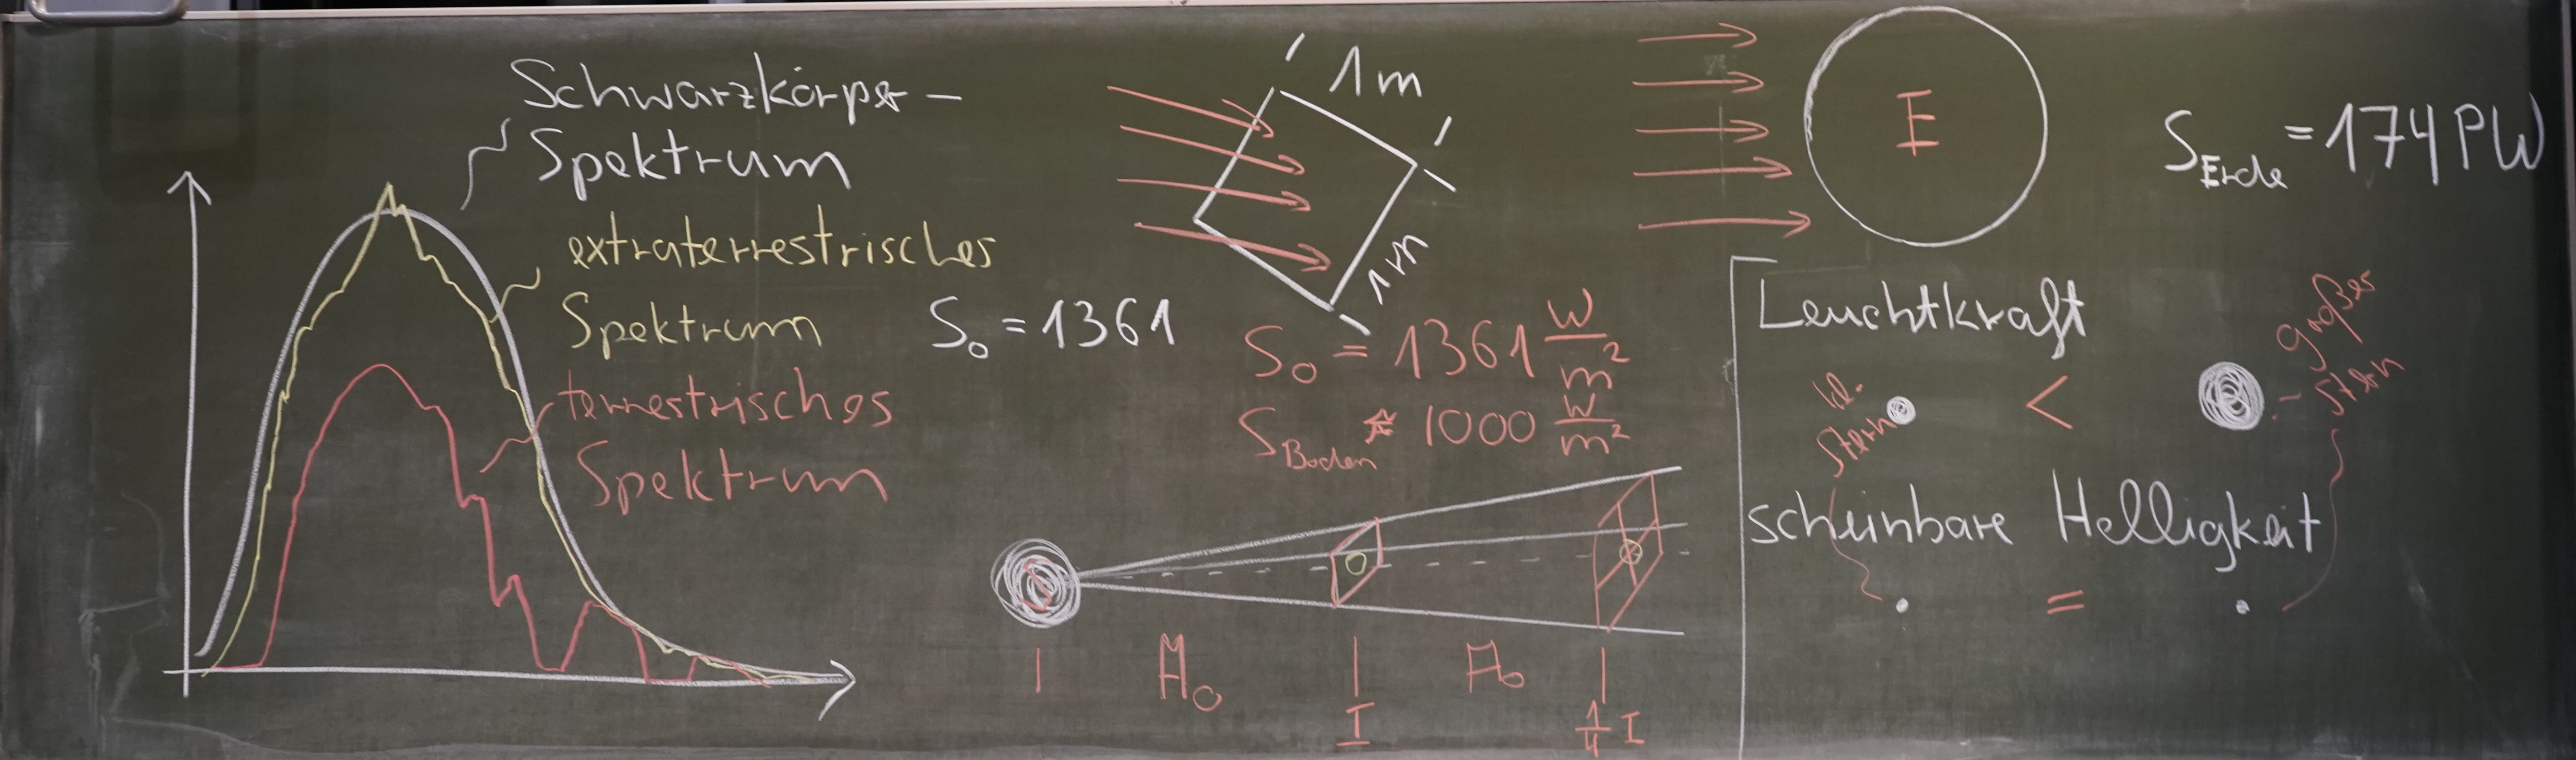 Schwarzkörper-
Spektrum
extraterrestrisches
Spektrum
terrestrisches
Spektrum
S₀ = 1361
1m
1m
S₀ = 1361 W/m²
S_Boden ≈ 1000 W/m²
E
S_Erde = 174 PW
S
A₀
A₀
I
1/4 I
Leuchtkraft
kl.
Stern
<
großer
Stern
scheinbare Helligkeit
=